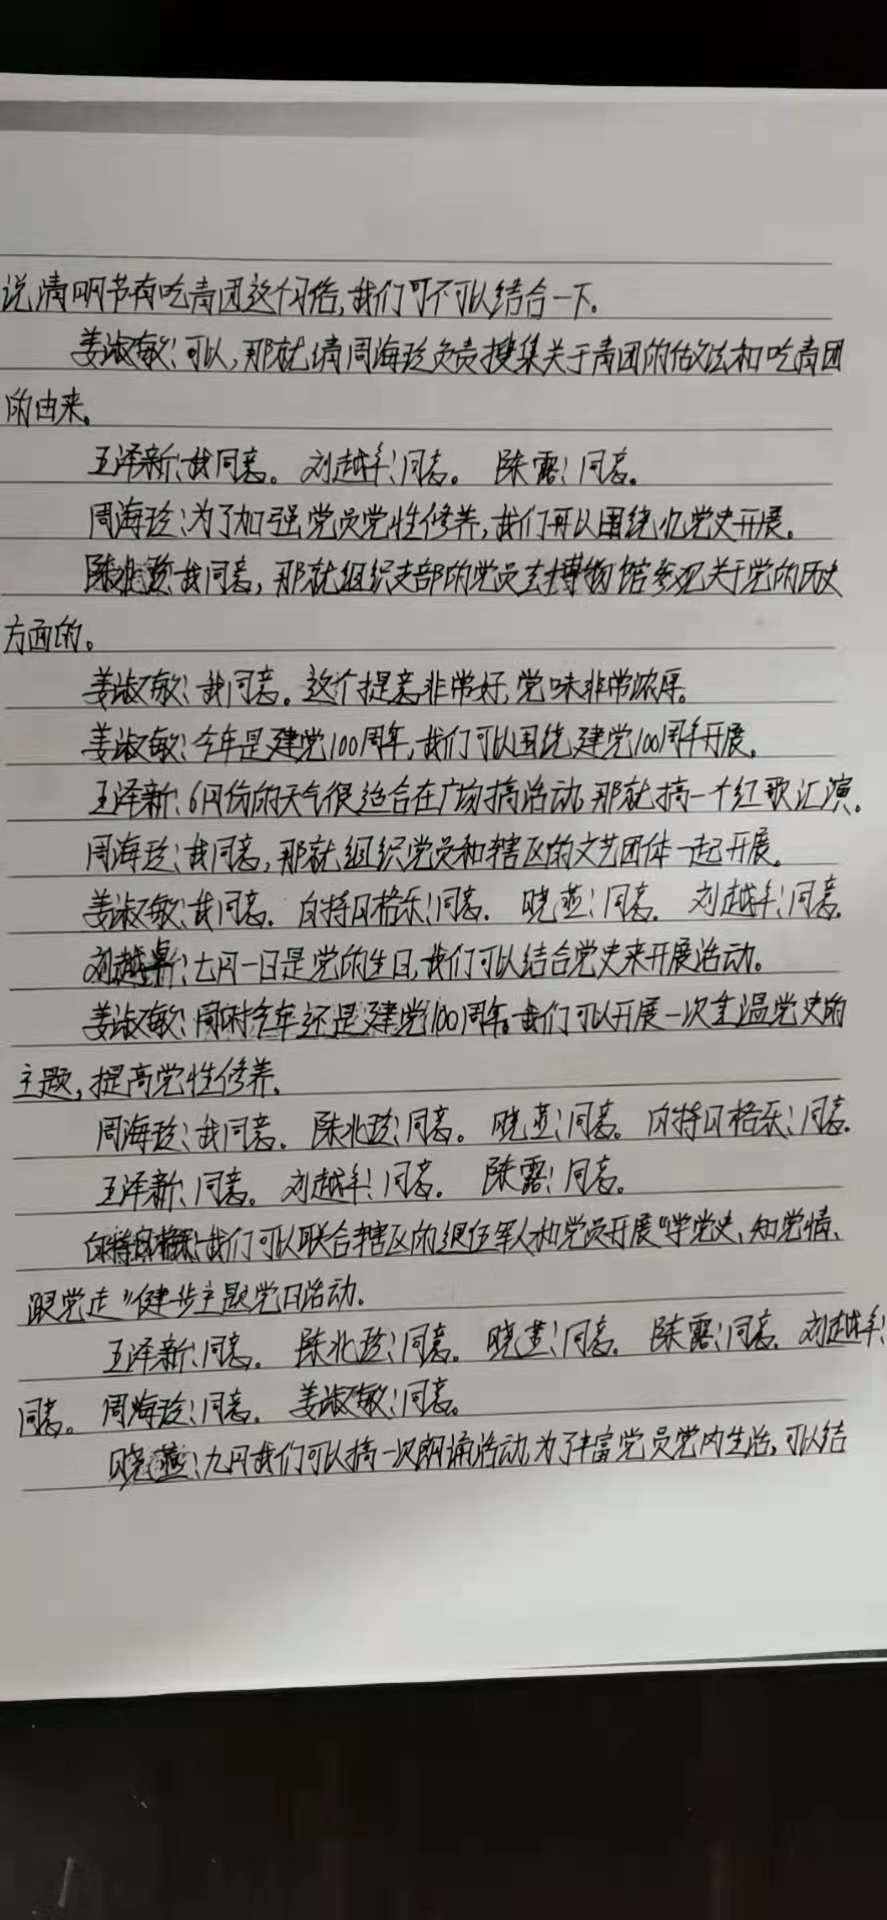 说清明节有吃青团这个习俗,我们可不可以结合一下。
姜淑敏:可以,那就请周海玲负责搜集关于青团的做法和吃青团
的由来。
王泽新:我同意。刘越年:同意。陈露:同意。
周海玲:为了加强党员党性修养,我们可以围绕忆党史开展。
陈北玲:我同意,那就组织支部的党员去博物馆参观关于党的历史
方面的。
姜淑敏:我同意。这个提意非常好,党味非常浓厚。
姜淑敏:今年是建党100周年,我们可以围绕建党100周年开展。
王泽新:6月份的天气很适合在广场搞活动,那就搞一个红歌汇演。
周海玲:我同意,那就组织党员和辖区的文艺团体一起开展。
姜淑敏:我同意。白特日格乐:同意。晓燕:同意。刘越年:同意。
刘越年:七月一日是党的生日,我们可以结合党史来开展活动。
姜淑敏:同时今年还是建党100周年。我们可以开展一次重温党史的
主题,提高党性修养。
周海玲:我同意。陈北玲:同意。晓燕:同意。白特日格乐:同意。
王泽新:同意。刘越年:同意。陈露:同意。
白特日格乐:我们可以联合辖区的退伍军人和党员开展“学党史、知党情、
跟党走”健步主题党日活动。
王泽新:同意。陈北玲:同意。晓燕:同意。陈露:同意。刘越年:
同意。周海玲:同意。姜淑敏:同意。
晓燕:九月我们可以搞一次朗诵活动,为了丰富党员党内生活,可以结